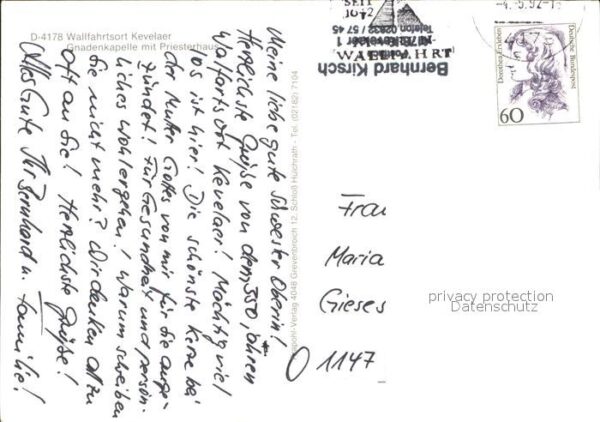 D-4178 Wallfahrtsort Kevelaer
Gnadenkapelle mit Priesterhaus
Meine liebe gute Schwester Oberin!
Herzlichste Grüße von dem 350, jähren
Walfarts ort Kevelaer! Mächtig viel
los ist hier! Die schönste Kerze bei
der Mutter Gottes von mir für Sie ange-
zündet! Für Gesundheit und persön-
liches wohlergehen! Warum schreiben
Sie nicht mehr? Wir denken all zu
oft an Sie! Herzlichste Grüße!
Alles Gute Ihr Bernhard u. Familie!
-Verlag 4048 Grevenbroich 12, Schloß Hülchrath - Tel. (02182) 7104
SEIT
1642
WALLFAHRT
Bernhard Kirsch
4178 Kevelaer 1
Telefon 02832 / 57 45
-4.-5.92-1
Dorothea Erxleben
Deutsche Bundespost
60
Frau
Maria
Gieses
O 1147
privacy protection
Datenschutz